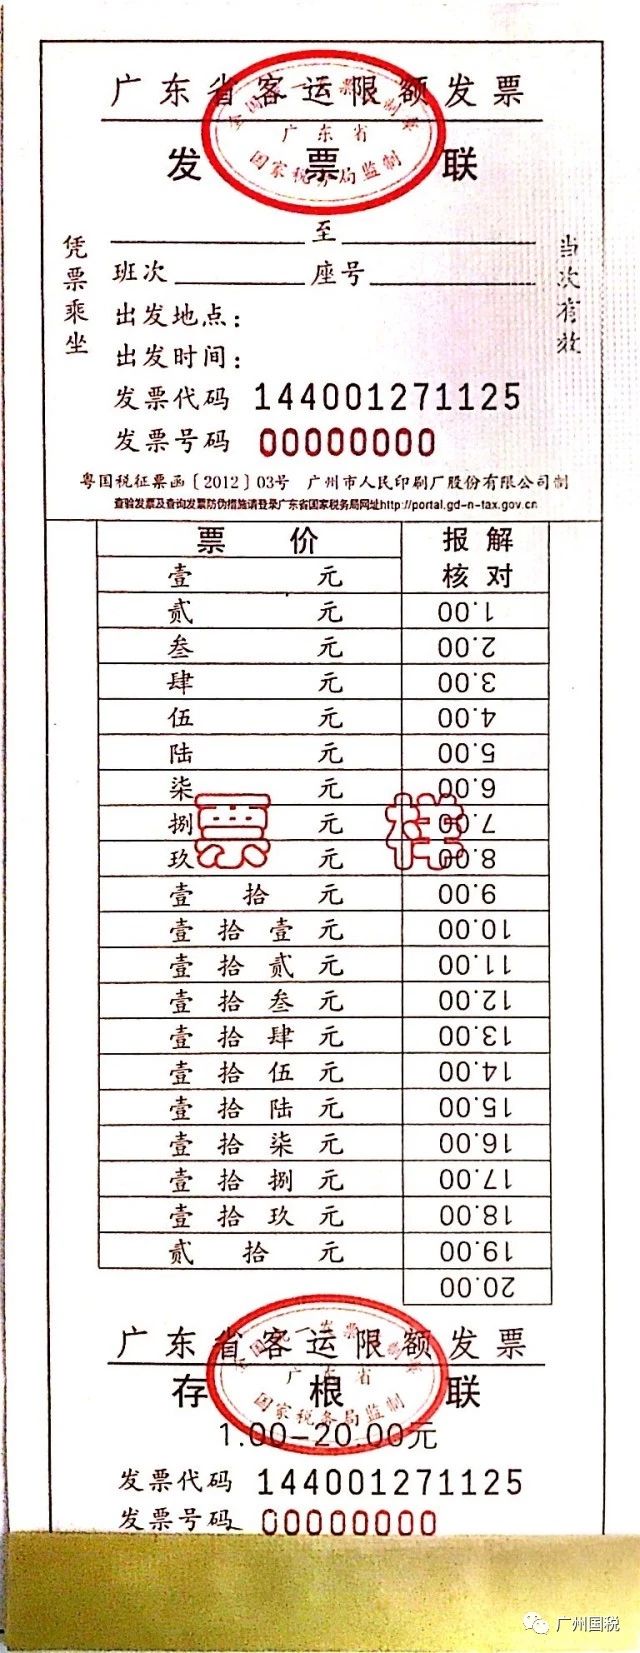 广东省客运限额发票
全国统一发票监制章
广东省
国家税务局监制
发票联
凭票乘坐
当次有效
至
班次 座号
出发地点：
出发时间：
发票代码 144001271125
发票号码 00000000
粤国税征票函〔2012〕03号 广州市人民印刷厂股份有限公司制
查验发票及查询发票防伪措施请登录广东省国家税务局网址http://portal.gd-n-tax.gov.cn
票价 报解
壹元 核对
贰元 1.00
叁元 2.00
肆元 3.00
伍元 4.00
陆元 5.00
柒元 6.00
捌元 7.00
玖元 8.00
票样
壹拾元 9.00
壹拾壹元 10.00
壹拾贰元 11.00
壹拾叁元 12.00
壹拾肆元 13.00
壹拾伍元 14.00
壹拾陆元 15.00
壹拾柒元 16.00
壹拾捌元 17.00
壹拾玖元 18.00
贰拾元 19.00
20.00
广东省客运限额发票
全国统一发票监制章
广东省
国家税务局监制
存根联
1.00-20.00元
发票代码 144001271125
发票号码 00000000
广州国税